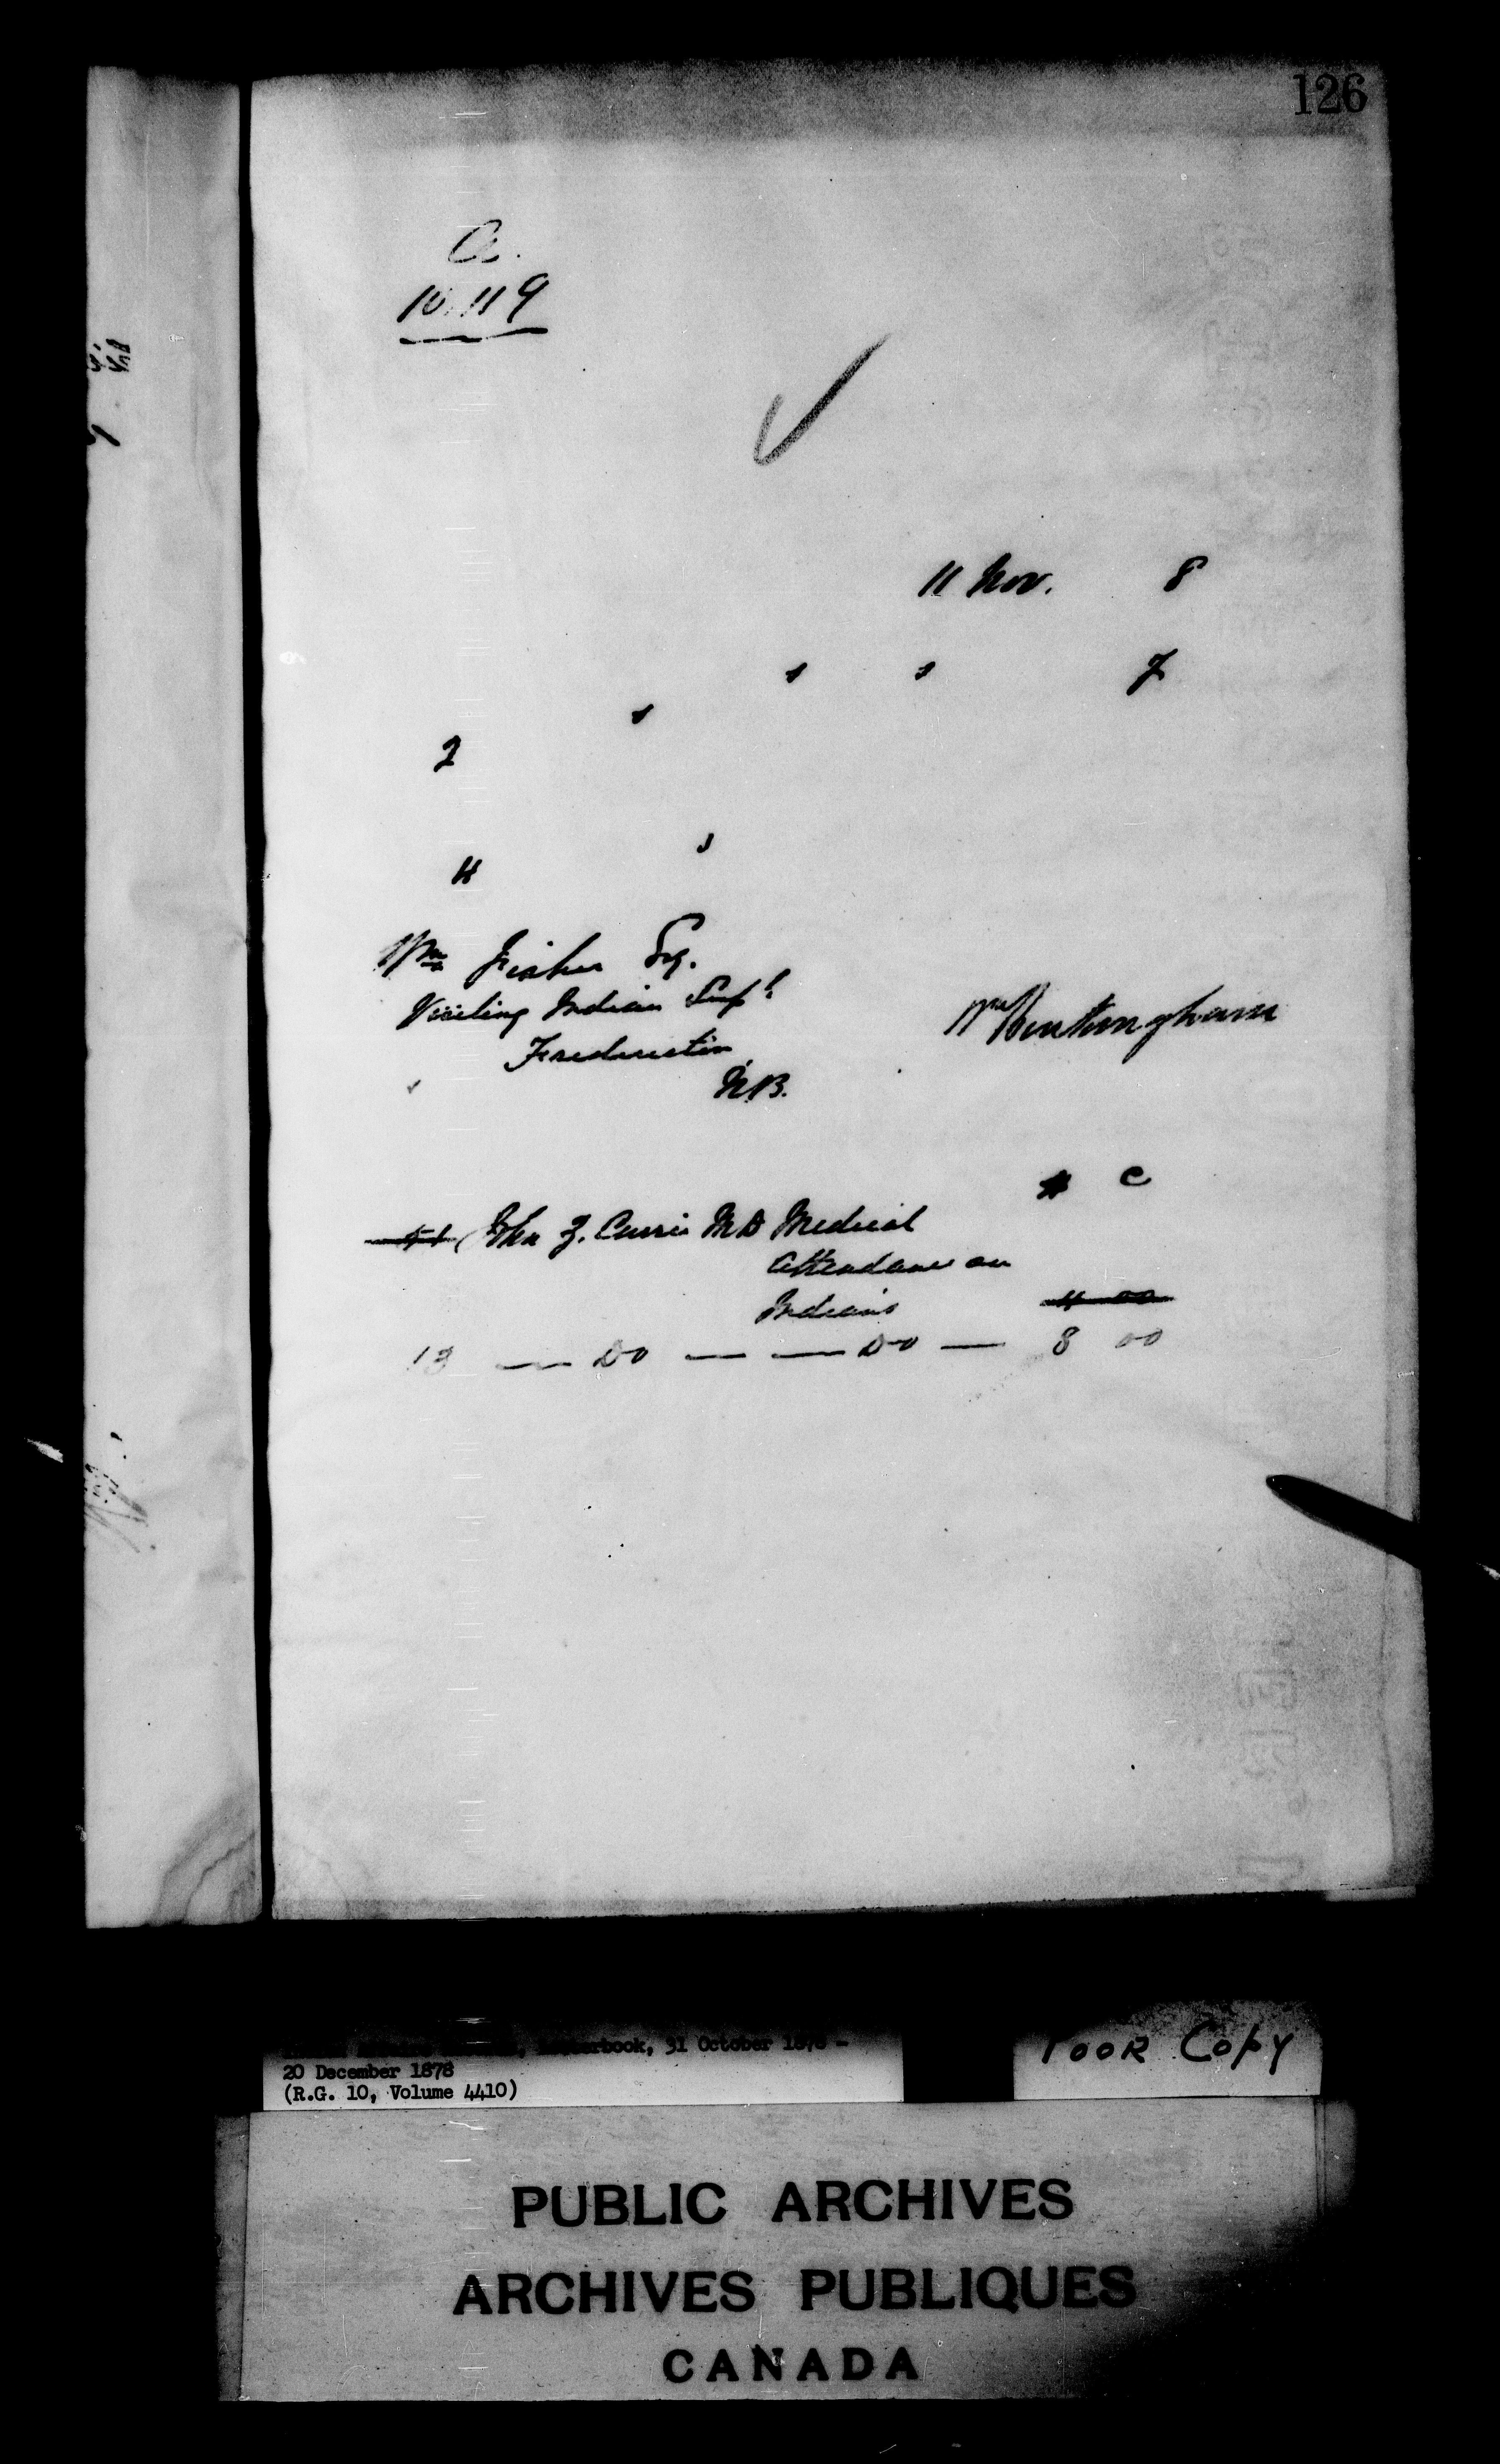 126
10.119
11 Nov. 8
s s 7
s
2
4 s
Wm Fisher Esq.
Visiting Indian Supt
Fredericton
N.B.
$ C
51 Jno Z. Currie M.D Medical
Attendance on
Indians 4 00
13 — Do — — Do — 8 00
book, 31 October 1878 -
20 December 1878
(R.G. 10, Volume 4410)
POOR Copy
PUBLIC ARCHIVES
ARCHIVES PUBLIQUES
CANADA